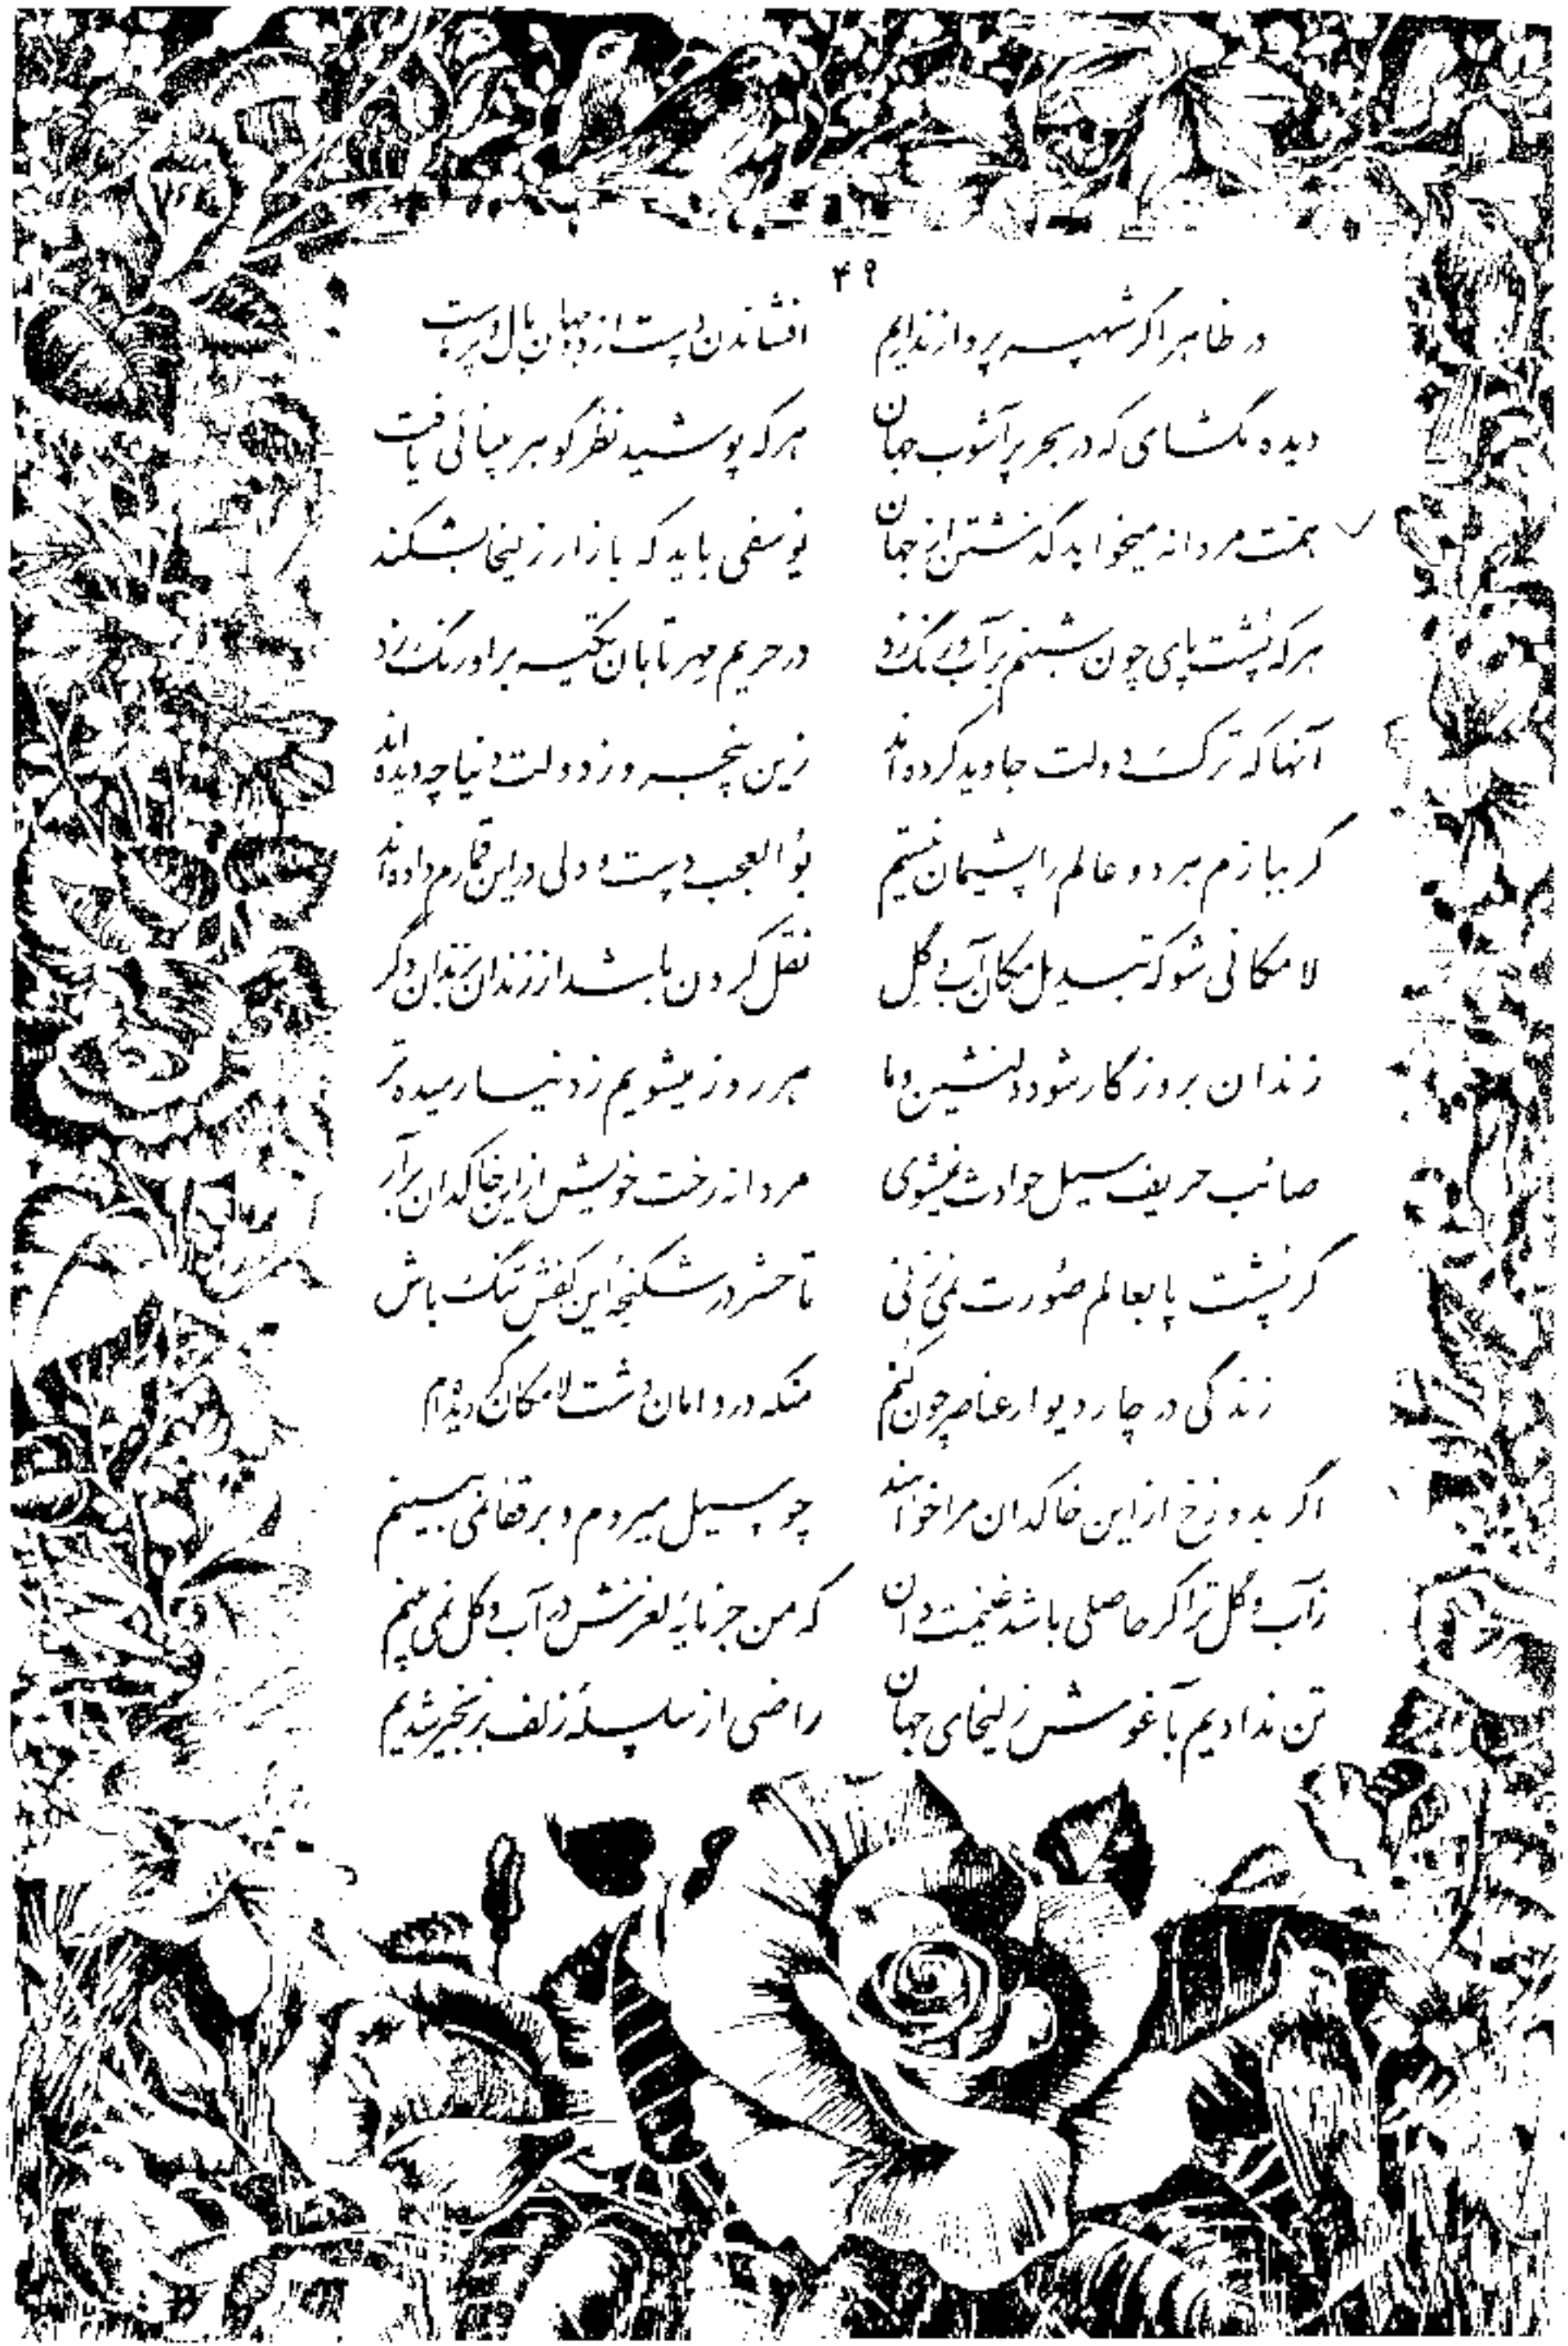 ۴۹
در ظاهر اگر شهپر پرواز نداریم افشاندن دست از دو جهان بال و پر ماست
دیده مگشای که در بحر پرآشوب جهان هر که پوشید نظر گوهر بینائی یافت
همت مردانه میخواهد گذشتن از جهان یوسفی باید که بازار زلیخا بشکند
هر که پشت پای چون شبنم بر آب و رنگ زد در حریم مهر تابان تکیه بر اورنگ زد
آنها که ترک دولت جاوید کرده اند زین پنج روزه دولت دنیا چه دیده اند
گر ببازم هر دو عالم را پشیمان نیستم بوالعجب دست و دلی در این قمارم داده اند
لامکانی شو که تبدیل مکان آب و گل نقل کردن باشد از زندان بزندان دگر
زندان بروزگار شود دلنشین و ما هر روز میشویم ز دنیا رمیده تر
صائب حریف سیل حوادث نمیشوی مردانه رخت خویش از این خاکدان برآر
گر پشت پا بعالم صورت نمی زنی تا حشر در شکنجهٔ این کفش تنگ باش
زندگی در چار دیوار عناصر چون کنم منکه در دامان دشت لامکان گردیده ام
اگر بدوزخ از این خاکدان مرا خوانند چو سیل میروم و بر قفا نمی بینم
ز آب و گل ترا گر حاصلی باشد غنیمت دان که من جز مایهٔ لغزش در آب و گل نمی بینم
تن ندادیم بآغوش زلیخای جهان راضی از سلسلهٔ زلف بزنجیر شدیم